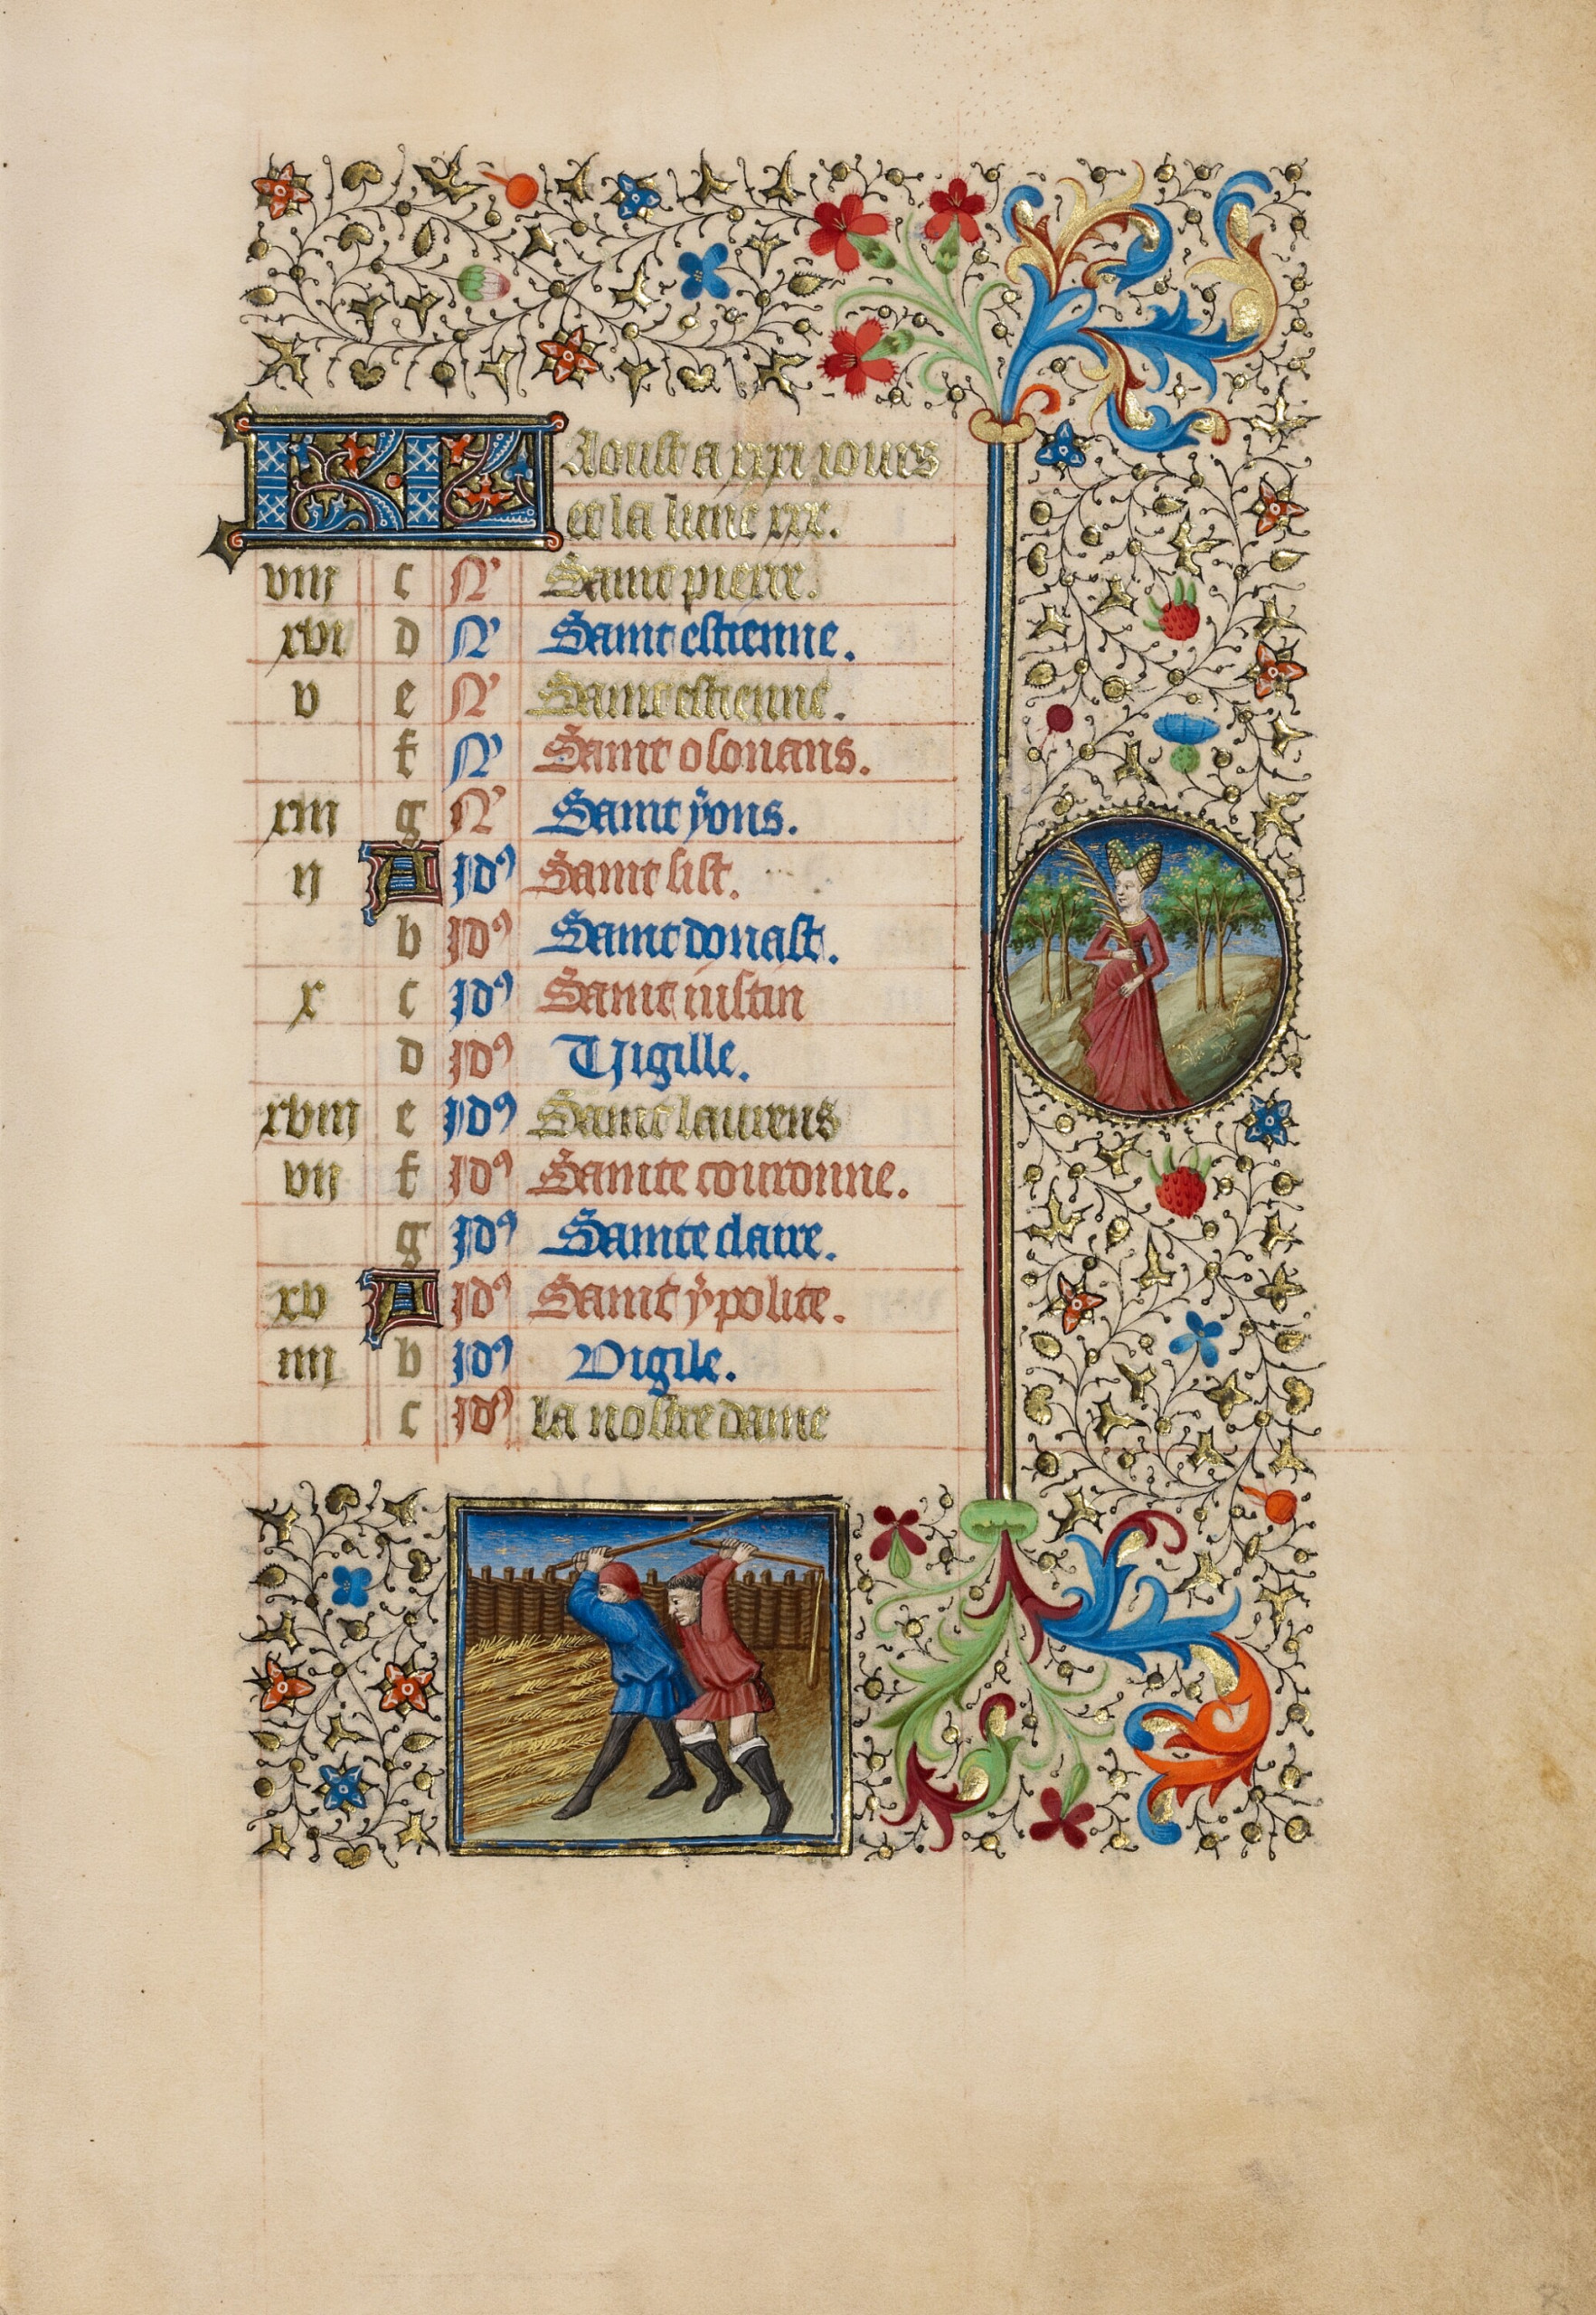 KL Aoust a xxxi jours
et la lune xxx.
viii c N' Saint pierre.
xvi d N' Saint estienne.
v e N' Saint estienne.
f N' Saint osouans.
xiii g N' Saint ÿons.
ii A id9 Saint sist.
b id9 Saint donast.
x c id9 Saint iustin
d id9 Vigille.
xviii e id9 Saint laurens
vii f id9 Sainte couronne.
g id9 Sainte claire.
xv A id9 Saint ÿpolite.
iiii b id9 Vigile.
c id9 la nostre dame